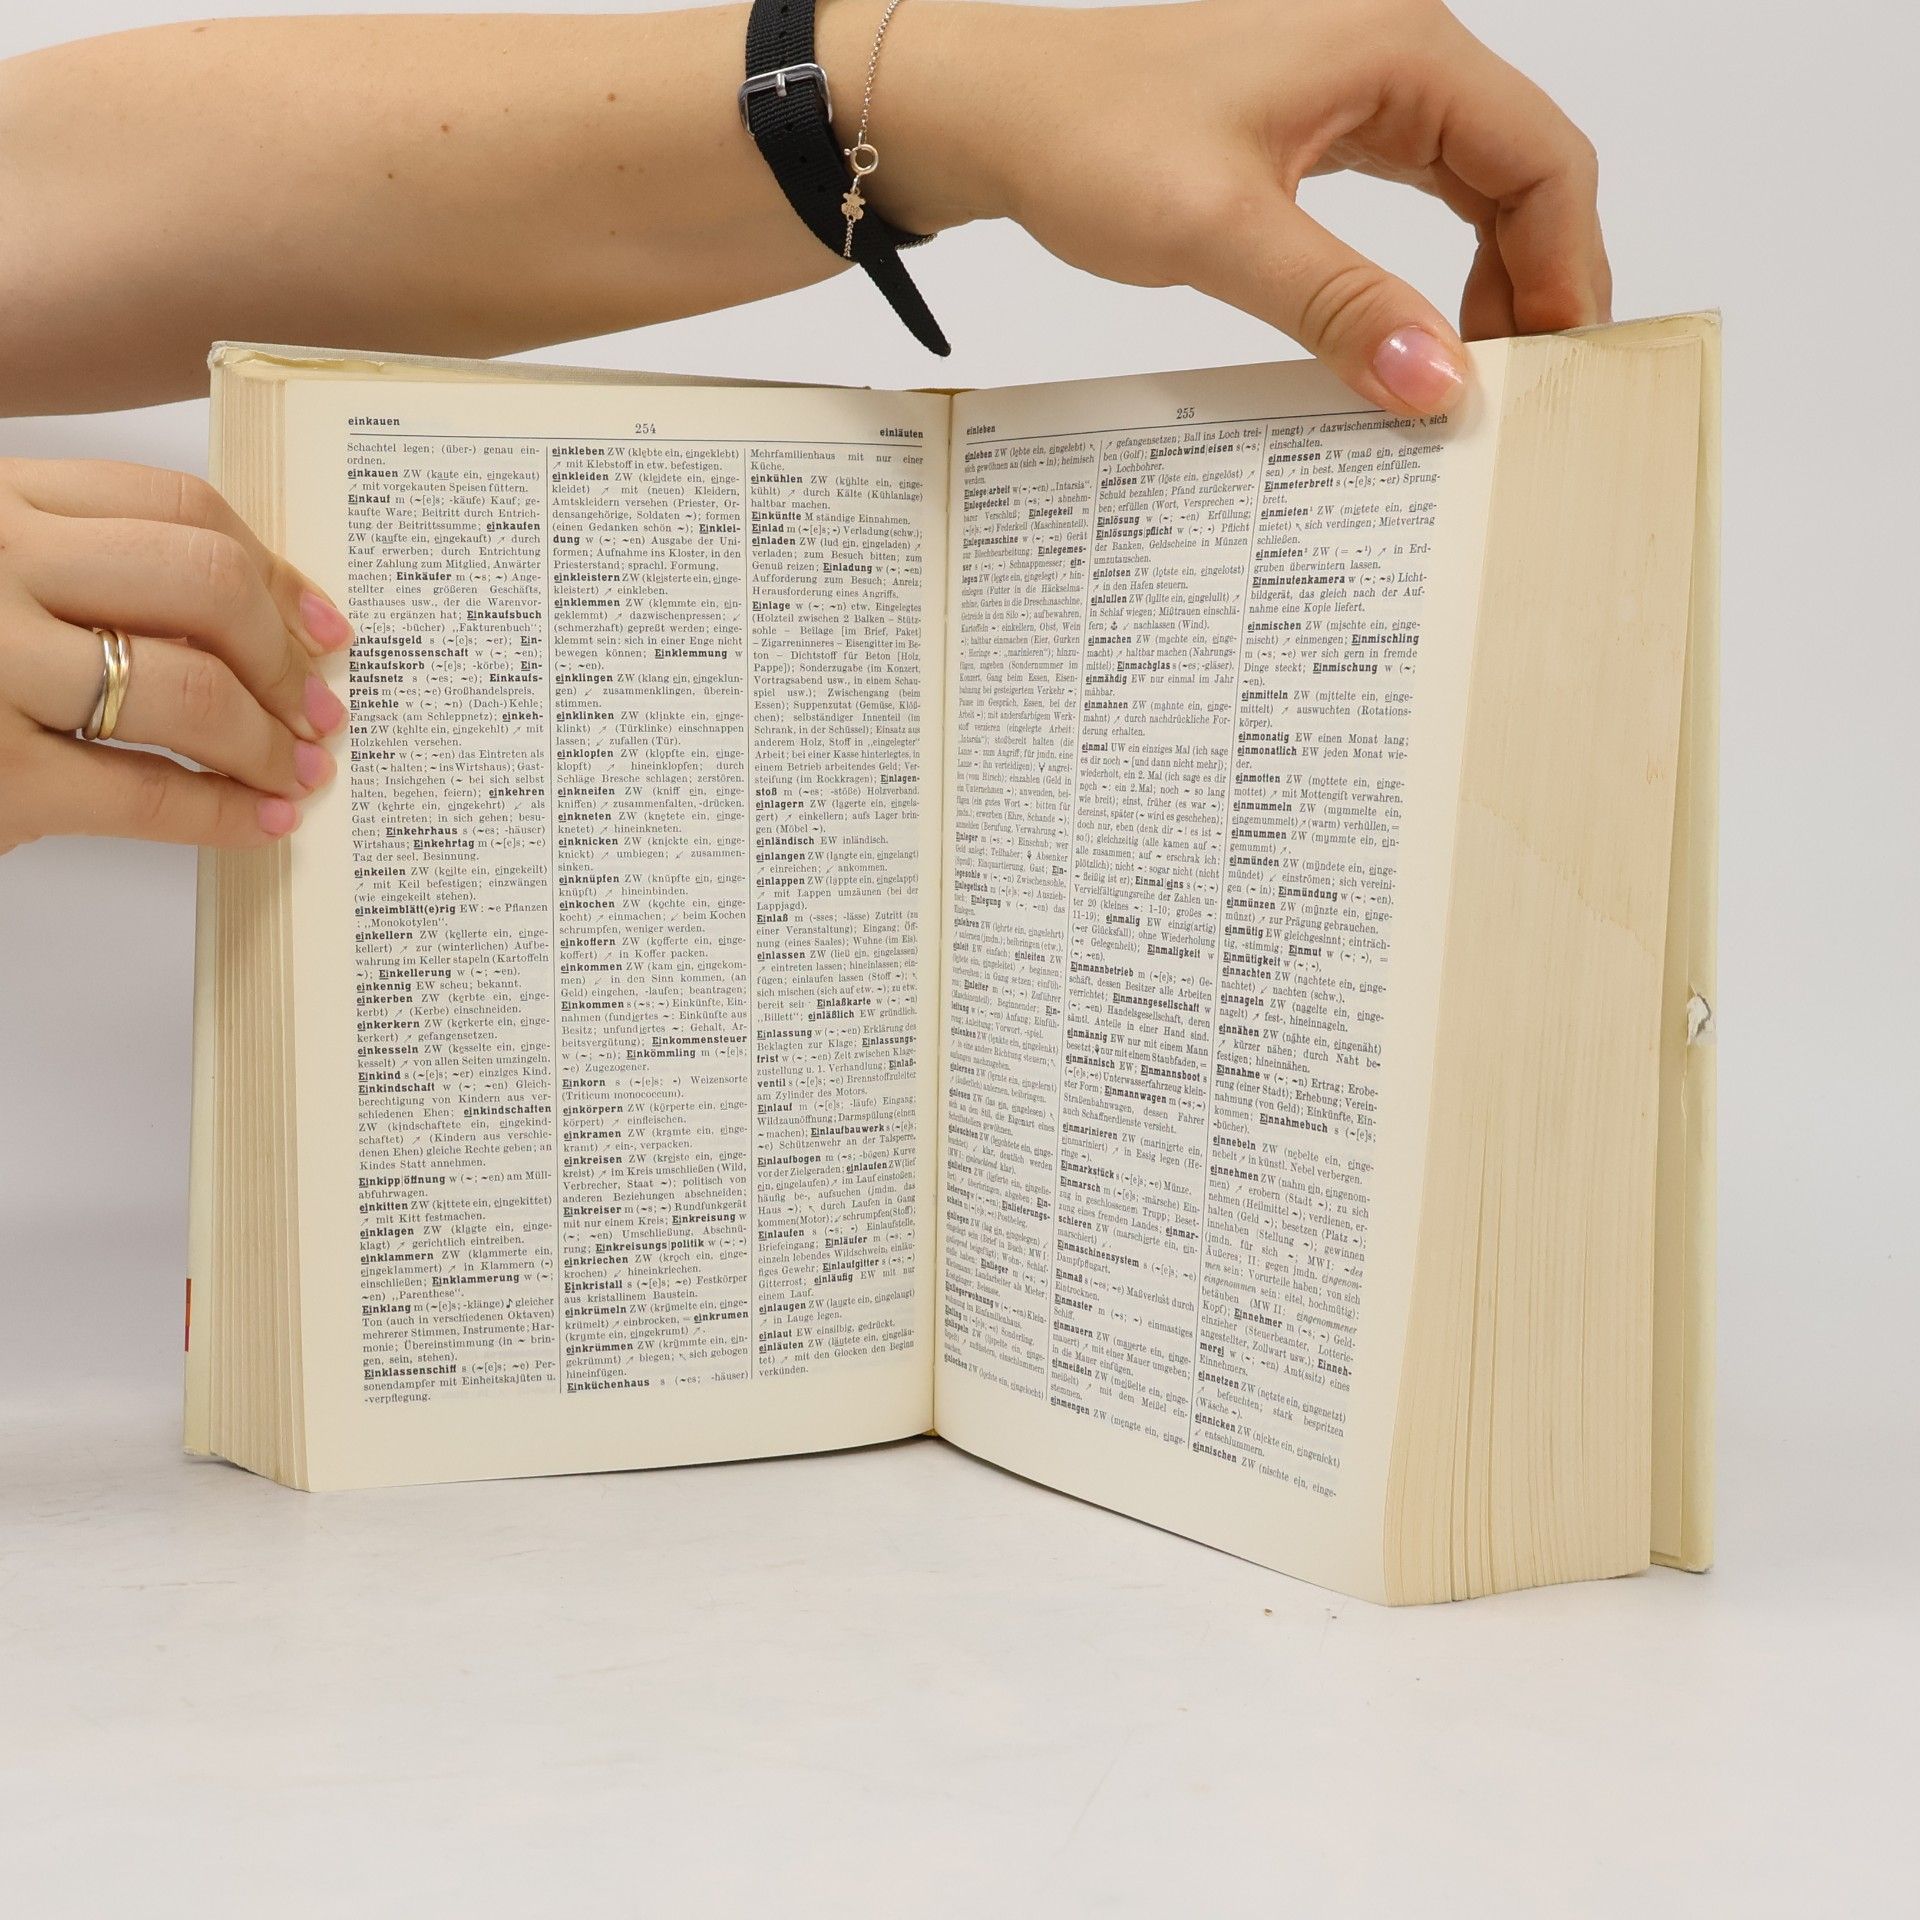 einkauen
254
einläuten
Schachtel legen; (über-) genau ein-
ordnen.
einkauen ZW (kaute ein, eingekaut)
↗ mit vorgekauten Speisen füttern.
Einkauf m (~[e]s; -käufe) Kauf; ge-
kaufte Ware; Beitritt durch Entrich-
tung der Beitrittssumme; einkaufen
ZW (kaufte ein, eingekauft) ↗ durch
Kauf erwerben; durch Entrichtung
einer Zahlung zum Mitglied, Anwärter
machen; Einkäufer m (~s; ~) Ange-
stellter eines größeren Geschäfts,
Gasthauses usw., der die Warenvor-
räte zu ergänzen hat; Einkaufsbuch
s (~[e]s; -bücher) „Fakturenbuch“;
Einkaufsgeld s (~[e]s; ~er); Ein-
kaufsgenossenschaft w (~; ~en);
Einkaufskorb (~[e]s; -körbe); Ein-
kaufsnetz s (~es; ~e); Einkaufs-
preis m (~es; ~e) Großhandelspreis.
Einkehle w (~; ~n) (Dach-)Kehle;
Fangsack (am Schleppnetz); einkeh-
len ZW (kehlte ein, eingekehlt) ↗ mit
Holzkehlen versehen.
Einkehr w (~; ~en) das Eintreten als
Gast (~ halten; ~ ins Wirtshaus); Gast-
haus; Insichgehen (~ bei sich selbst
halten, begehen, feiern); einkehren
ZW (kehrte ein, eingekehrt) ↙ als
Gast eintreten; in sich gehen; besu-
chen; Einkehrhaus s (~es; -häuser)
Wirtshaus; Einkehrtag m (~[e]s; ~e)
Tag der seel. Besinnung.
einkeilen ZW (keilte ein, eingekeilt)
↗ mit Keil befestigen; einzwängen
(wie eingekeilt stehen).
einkeimblätt(e)rig EW: ~e Pflanzen
: „Monokotylen“.
einkellern ZW (kellerte ein, einge-
kellert) ↗ zur (winterlichen) Aufbe-
wahrung im Keller stapeln (Kartoffeln
~); Einkellerung w (~; ~en).
einkennig EW scheu; bekannt.
einkerben ZW (kerbte ein, einge-
kerbt) ↗ (Kerbe) einschneiden.
einkerkern ZW (kerkerte ein, einge-
kerkert) ↗ gefangensetzen.
einkesseln ZW (kesselte ein, einge-
kesselt) ↗ von allen Seiten umzingeln.
Einkind s (~[e]s; ~er) einziges Kind.
Einkindschaft w (~; ~en) Gleich-
berechtigung von Kindern aus ver-
schiedenen Ehen; einkindschaften
ZW (kindschaftete ein, eingekind-
schaftet) ↗ (Kindern aus verschie-
denen Ehen) gleiche Rechte geben; an
Kindes Statt annehmen.
Einkipp|öffnung w (~; ~en) am Müll-
abfuhrwagen.
einkitten ZW (kittete ein, eingekittet)
↗ mit Kitt festmachen.
einklagen ZW (klagte ein, einge-
klagt) ↗ gerichtlich eintreiben.
einklammern ZW (klammerte ein,
eingeklammert) ↗ in Klammern (-)
einschließen; Einklammerung w (~;
~en) „Parenthese“.
Einklang m (~[e]s; -klänge) ♪ gleicher
Ton (auch in verschiedenen Oktaven)
mehrerer Stimmen, Instrumente; Har-
monie; Übereinstimmung (in ~ brin-
gen, sein, stehen).
Einklassenschiff s (~[e]s; ~e) Per-
sonendampfer mit Einheitskajüten u.
-verpflegung.
einkleben ZW (klebte ein, eingeklebt)
↗ mit Klebstoff in etw. befestigen.
einkleiden ZW (kleidete ein, einge-
kleidet) ↗ mit (neuen) Kleidern,
Amtskleidern versehen (Priester, Or-
densangehörige, Soldaten ~); formen
(einen Gedanken schön ~); Einklei-
dung w (~; ~en) Ausgabe der Uni-
formen; Aufnahme ins Kloster, in den
Priesterstand; sprachl. Formung.
einkleistern ZW (kleisterte ein, einge-
kleistert) ↗ einkleben.
einklemmen ZW (klemmte ein, ein-
geklemmt) ↗ dazwischenpressen; ↙
(schmerzhaft) gepreßt werden; einge-
klemmt sein: sich in einer Enge nicht
bewegen können; Einklemmung w
(~; ~en).
einklingen ZW (klang ein, eingeklun-
gen) ↙ zusammenklingen, überein-
stimmen.
einklinken ZW (klinkte ein, einge-
klinkt) ↗ (Türklinke) einschnappen
lassen; ↙ zufallen (Tür).
einklopfen ZW (klopfte ein, einge-
klopft) ↗ hineinklopfen; durch
Schläge Bresche schlagen; zerstören.
einkneifen ZW (kniff ein, einge-
kniffen) ↗ zusammenfalten, -drücken.
einkneten ZW (knetete ein, einge-
knetet) ↗ hineinkneten.
einknicken ZW (knickte ein, einge-
knickt) ↗ umbiegen; ↙ zusammen-
sinken.
einknüpfen ZW (knüpfte ein, einge-
knüpft) ↗ hineinbinden.
einkochen ZW (kochte ein, einge-
kocht) ↗ einmachen; ↙ beim Kochen
schrumpfen, weniger werden.
einkoffern ZW (kofferte ein, einge-
koffert) ↗ in Koffer packen.
einkommen ZW (kam ein, eingekom-
men) ↙ in den Sinn kommen, (an
Geld) eingehen, -laufen; beantragen;
Einkommen s (~s; ~) Einkünfte, Ein-
nahmen (fundiertes ~: Einkünfte aus
Besitz; unfundiertes ~: Gehalt, Ar-
beitsvergütung); Einkommensteuer
w (~; ~n); Einkömmling m (~[e]s;
~e) Zugezogener.
Einkorn s (~[e]s; -) Weizensorte
(Triticum monococcum).
einkörpern ZW (körperte ein, einge-
körpert) ↗ einfleischen.
einkramen ZW (kramte ein, einge-
kramt) ↗ ein-, verpacken.
einkreisen ZW (kreiste ein, einge-
kreist) ↗ im Kreis umschließen (Wild,
Verbrecher, Staat ~); politisch von
anderen Beziehungen abschneiden;
Einkreiser m (~s; ~) Rundfunkgerät
mit nur einem Kreis; Einkreisung w
(~; ~en) Umschließung, Abschnü-
rung; Einkreisungs|politik w (~; -)
einkriechen ZW (kroch ein, einge-
krochen) ↙ hineinkriechen.
Einkristall s (~[e]s; ~e) Festkörper
aus kristallinem Baustein.
einkrümeln ZW (krümelte ein, einge-
krümelt) ↗ einbrocken, = einkrumen
(krumte ein, eingekrumt) ↗.
einkrümmen ZW (krümmte ein, ein-
gekrümmt) ↗ biegen; ↖ sich gebogen
hineinfügen.
Einküchenhaus s (~es; -häuser)
Mehrfamilienhaus mit nur einer
Küche.
einkühlen ZW (kühlte ein, einge-
kühlt) ↗ durch Kälte (Kühlanlage)
haltbar machen.
Einkünfte M ständige Einnahmen.
Einlad m (~[e]s; -) Verladung (schw.);
einladen ZW (lud ein, eingeladen) ↗
verladen; zum Besuch bitten; zum
Genuß reizen; Einladung w (~; ~en)
Aufforderung zum Besuch; Anreiz;
Herausforderung eines Angriffs.
Einlage w (~; ~n) etw. Eingelegtes
(Holzteil zwischen 2 Balken – Stütz-
sohle – Beilage [im Brief, Paket]
– Zigarreninneres – Eisengitter im Be-
ton – Dichtstoff für Beton [Holz,
Pappe]); Sonderzugabe (im Konzert,
Vortragsabend usw., in einem Schau-
spiel usw.); Zwischengang (beim
Essen); Suppenzutat (Gemüse, Klöß-
chen); selbständiger Innenteil (im
Schrank, in der Schüssel); Einsatz aus
anderem Holz, Stoff in „eingelegter“
Arbeit; bei einer Kasse hinterlegtes, in
einem Betrieb arbeitendes Geld; Ver-
steifung (im Rockkragen); Einlagen-
stoß m (~es; -stöße) Holzverband.
einlagern ZW (lagerte ein, eingela-
gert) ↗ einkellern; aufs Lager brin-
gen (Möbel ~).
einländisch EW inländisch.
einlangen ZW (langte ein, eingelangt)
↗ einreichen; ↙ ankommen.
einlappen ZW (lappte ein, eingelappt)
↗ mit Lappen umzäunen (bei der
Lappjagd).
Einlaß m (-sses; -lässe) Zutritt (zu
einer Veranstaltung); Eingang; Öff-
nung (eines Saales); Wuhne (im Eis).
einlassen ZW (ließ ein, eingelassen)
↗ eintreten lassen; hineinlassen; ein-
fügen; einlaufen lassen (Stoff ~); ↖
sich mischen (sich auf etw. ~); zu etw.
bereit sein; Einlaßkarte w (~; ~n)
„Billett“; einläßlich EW gründlich.
Einlassung w (~; ~en) Erklärung des
Beklagten zur Klage; Einlassungs-
frist w (~; ~en) Zeit zwischen Klage-
zustellung u. 1. Verhandlung; Einlaß-
ventil s (~[e]s; ~e) Brennstoffruleiter
am Zylinder des Motors.
Einlauf m (~[e]s; -läufe) Eingang;
Wildzaunöffnung; Darmspülung (einen
~ machen); Einlaufbauwerk s (~[e]s;
~e) Schützenwehr an der Talsperre.
Einlaufbogen m (~s; -bögen) Kurve
vor der Zielgeraden; einlaufen ZW (lief
ein, eingelaufen) ↗ im Lauf einstoßen;
häufig be-, aufsuchen (jmdm. das
Haus ~); ↖ durch Laufen in Gang
kommen (Motor); ↙ schrumpfen (Stoff);
Einlaufen s (~s; -) Einlaufstelle,
Briefeingang; Einläufer m (~s; ~)
einzeln lebendes Wildschwein; einläu-
figes Gewehr; Einlaufgitter s (~s; ~)
Gitterrost; einläufig EW mit nur
einem Lauf.
einlaugen ZW (laugte ein, eingelaugt)
↗ in Lauge legen.
einlaut EW einsilbig, gedrückt.
einläuten ZW (läutete ein, eingeläu-
tet) ↗ mit den Glocken den Beginn
verkünden.
einleben
255
einleben ZW (lebte ein, eingelebt) ↖
sich gewöhnen an (sich ~ in); heimisch
werden.
Einlege|arbeit w (~; ~en) „Intarsia“.
Einlegedeckel m (~s; ~) abnehm-
barer Verschluß; Einlegekeil m
(~[e]s; ~e) Federkeil (Maschinenteil).
Einlegemaschine w (~; ~n) Gerät
zur Blechbearbeitung; Einlegemes-
ser s (~s; ~) Schnappmesser; ein-
legen ZW (legte ein, eingelegt) ↗ hin-
einlegen (Futter in die Häckselma-
schine, Garben in die Dreschmaschine,
Getreide in den Silo ~); aufbewahren,
↗ gefangensetzen; Ball ins Loch trei-
ben (Golf); Einlochwind|eisen s (~s;
~) Lochbohrer.
einlösen ZW (löste ein, eingelöst) ↗
Schuld bezahlen; Pfand zurückerwer-
ben; erfüllen (Wort, Versprechen ~);
Einlösung w (~; ~en) Erfüllung;
Einlösungs|pflicht w (~; -) Pflicht
der Banken, Geldscheine in Münzen
umzutauschen.
einlotsen ZW (lotste ein, eingelotst)
↗ in den Hafen steuern.
einlullen ZW (lullte ein, eingelullt) ↗
in Schlaf wiegen; Mißtrauen einschlä-
fern; ⚓ ↙ nachlassen (Wind).
einmachen ZW (machte ein, einge-
macht) ↗ haltbar machen (Nahrungs-
mittel); Einmachglas s (~es; -gläser).
einmähdig EW nur einmal im Jahr
mähbar.
einmahnen ZW (mahnte ein, einge-
mahnt) ↗ durch nachdrückliche For-
derung erhalten.
einmal UW ein einziges Mal (ich sage
es dir noch ~ [und dann nicht mehr]);
wiederholt, ein 2. Mal (ich sage es dir
noch ~: ein 2. Mal; noch ~ so lang
wie breit); einst, früher (es war ~);
dereinst, später (~ wird es geschehen);
doch nur, eben (denk dir ~! es ist ~
so!); gleichzeitig (alle kamen auf ~:
alle zusammen; auf ~ erschrak ich:
plötzlich); nicht ~: sogar nicht (nicht
~ fleißig ist er); Einmal|eins s (~; ~)
Vervielfältigungsreihe der Zahlen un-
ter 20 (kleines ~: 1-10; großes ~:
11-19); einmalig EW einzig(artig)
(~er Glücksfall); ohne Wiederholung
(~e Gelegenheit); Einmaligkeit w
(~; ~en).
Einmannbetrieb m (~[e]s; ~e) Ge-
schäft, dessen Besitzer alle Arbeiten
verrichtet; Einmanngesellschaft w
(~; ~en) Handelsgesellschaft, deren
sämtl. Anteile in einer Hand sind.
einmännig EW nur mit einem Mann
besetzt; nur mit einem Staubfaden, =
einmännisch EW; Einmannsboot s
(~[e]s; ~e) Unterwasserfahrzeug klein-
ster Form; Einmannwagen m (~s; ~)
Straßenbahnwagen, dessen Fahrer
auch Schaffnerdienste versieht.
einmarinieren ZW (marinierte ein,
einmariniert) ↗ in Essig legen (He-
ringe ~).
Einmarkstück s (~[e]s; ~e) Münze.
Einmarsch m (~[e]s; -märsche) Ein-
zug in geschlossenem Trupp; Beset-
zung eines fremden Landes; einmar-
schieren ZW (marschierte ein, ein-
marschiert) ↙.
Einmaschinensystem s (~[e]s; ~e)
Dampfpflugart.
Einmaß s (~es; ~e) Maßverlust durch
Eintrocknen.
Einmaster m (~s; ~) einmastiges
Schiff.
einmauern ZW (mauerte ein, einge-
mauert) ↗ mit einer Mauer umgeben;
in die Mauer einfügen.
einmeißeln ZW (meißelte ein, einge-
meißelt) ↗ mit dem Meißel ein-
stemmen.
einmengen ZW (mengte ein, einge-
mengt) ↗ dazwischenmischen; ↖ sich
einschalten.
einmessen ZW (maß ein, eingemes-
sen) ↗ in best. Mengen einfüllen.
Einmeterbrett s (~[e]s; ~er) Sprung-
brett.
einmieten¹ ZW (mietete ein, einge-
mietet) ↖ sich verdingen; Mietvertrag
schließen.
einmieten² ZW (= ~¹) ↗ in Erd-
gruben überwintern lassen.
Einminutenkamera w (~; ~s) Licht-
bildgerät, das gleich nach der Auf-
nahme eine Kopie liefert.
einmischen ZW (mischte ein, einge-
mischt) ↗ einmengen; Einmischling
m (~s; ~e) wer sich gern in fremde
Dinge steckt; Einmischung w (~;
~en).
einmitteln ZW (mittelte ein, einge-
mittelt) ↗ auswuchten (Rotations-
körper).
einmonatig EW einen Monat lang;
einmonatlich EW jeden Monat wie-
der.
einmotten ZW (mottete ein, einge-
mottet) ↗ mit Mottengift verwahren.
einmummeln ZW (mummelte ein,
eingemummelt) ↗ (warm) verhüllen, =
einmummen ZW (mummte ein, ein-
gemummt) ↗.
einmünden ZW (mündete ein, einge-
mündet) ↙ einströmen; sich vereini-
gen (~ in); Einmündung w (~; ~en).
einmünzen ZW (münzte ein, einge-
münzt) ↗ zur Prägung gebrauchen.
einmütig EW gleichgesinnt; einträch-
tig, -stimmig; Einmut w (~; -), =
Einmütigkeit w (~; -).
einnachten ZW (nachtete ein, einge-
nachtet) ↙ nachten (schw.).
einnageln ZW (nagelte ein, einge-
nagelt) ↗ fest-, hineinnageln.
einnähen ZW (nähte ein, eingenäht)
↗ kürzer nähen; durch Naht be-
festigen; hineinnähen.
Einnahme w (~; ~n) Ertrag; Erobe-
rung (einer Stadt); Erhebung; Verein-
nahmung (von Geld); Einkünfte, Ein-
kommen; Einnahmebuch s (~[e]s;
-bücher).
einnebeln ZW (nebelte ein, einge-
nebelt) ↗ in künstl. Nebel verbergen.
einnehmen ZW (nahm ein, eingenom-
men) ↗ erobern (Stadt ~); zu sich
nehmen (Heilmittel ~); verdienen, er-
halten (Geld ~); besetzen (Platz ~);
innehaben (Stellung ~); gewinnen
(jmdn. für sich ~; MWI: ~des
Äußeres; II: gegen jmdn. eingenom-
men sein: Vorurteile haben; von sich
eingenommen sein: eitel, hochmütig);
betäuben (MW II: eingenommener
Kopf); Einnehmer m (~s; ~) Geld-
einzieher (Steuerbeamter, Lotterie-
angestellter, Zollwart usw.); Einneh-
merei w (~; ~en) Amt(ssitz) eines
Einnehmers.
einnetzen ZW (netzte ein, eingenetzt)
↗ befeuchten; stark bespritzen
(Wäsche ~).
einnicken ZW (nickte ein, eingenickt)
↙ entschlummern.
einnischen ZW (nischte ein, einge-